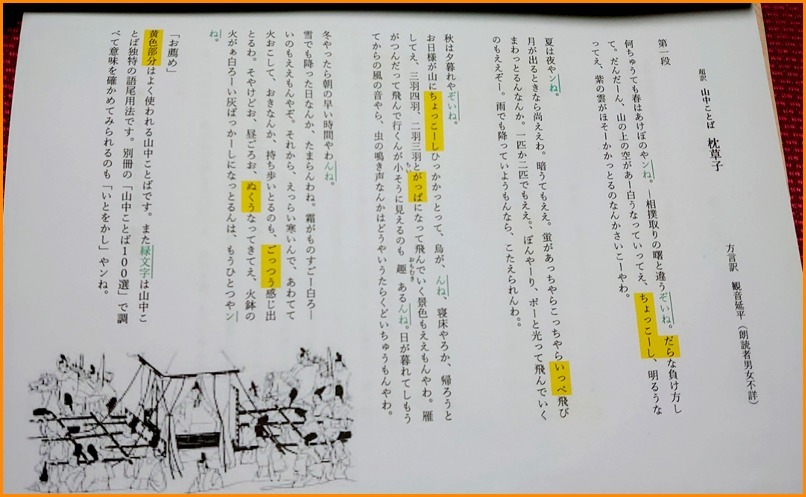 超訳 山中ことば 枕草子
方言訳 観音延平(朗読者男女不詳)
第一段
何ちゅうても春はあけぼのやンね。―相撲取りの曙と違うぞいね。だらな負け方し
て、だんだーん、山の上の空があー白うなっていってえ、ちょっこーし、明るうな
ってえ、紫の雲がほそーかかっとるのなんかさいこーやわ。
夏は夜やンね。
月が出るときなら尚ええわ。暗うてもええ。蛍があっちゃらこっちゃらいっぺ飛び
まわっとるんなんか。一匹か二匹でもええ。、ぼんやーり、ボーと光って飛んでいく
のもええぞー。雨でも降っていようもんなら、こたえられんわ。。
秋は夕暮れやぞいね。
お日様が山にちょっこーしひっかかっとって、烏が、んね、寝床やろか、帰ろうと
してえ、三羽四羽、二羽三羽とがっぱになって飛んでいく景色もええもんやわ。雁
がつんだって飛んで行くんが小そうに見えるのも 趣 あるんね。日が暮れてしもう
てからの風の音やら、虫の鳴き声なんかはどうぞいうたらくどいちゅうもんやわ。
冬やったら朝の早い時間やわんね。
雪でも降った日なんか、たまらんわね。霜がものすごー白ろー
いのもええもんやぞ。それから、えっらい寒いんで、あわてて
火おこして、おきなんか、持ち歩いとるのも、ごっつう感じ出
とるわ。そやけどお、昼ごろお、ぬくうなってきてえ、火鉢の
火がぁ白ろーい灰ばっかーしになっとるんは、もうひとつやン
ね。
「お薦め」
黄色部分はよく使われる山中ことばです。また緑文字は山中こ
とば独特の語尾用法です。別冊の「山中ことば100選」で調
べて意味を確かめてみられるのも「いとをかし」やンね。